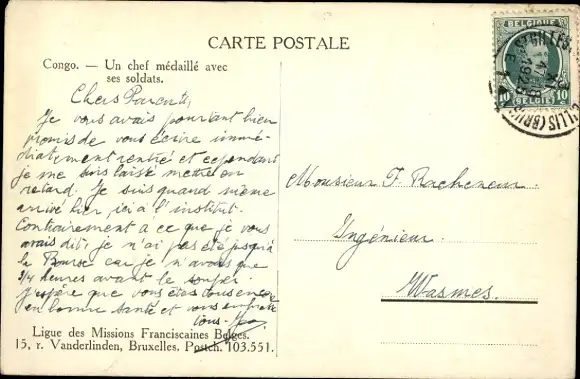 CARTE POSTALE
Congo. — Un chef médaillé avec
ses soldats.
Chers Parents,
Je vous avais pourtant bien
promis de vous écrire immé-
diatement rentré et cependant
je me suis laissé mettre en
retard. Je suis quand même
arrivé hier, ici à l'institut.
Contrairement à ce que je vous
avais dit, je n'ai pas été jusqu'à
la Bourse car je n'avais que
3/4 heures avant le souper
J'espère que vous êtes tous encore
en bonne santé et vous embrasse
tous
Ligue des Missions Franciscaines Belges.
15, r. Vanderlinden, Bruxelles. Postch. 103.551.
BELGIQUE
10 10
BELGIË
Monsieur F. Racheneur
Ingénieur
Wasmes.